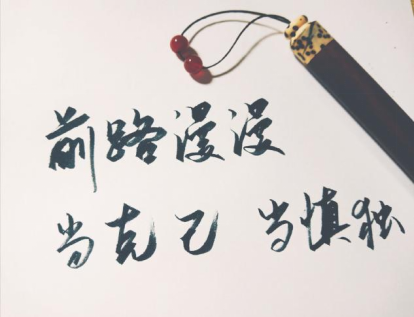 前路漫漫
当克己 当慎独